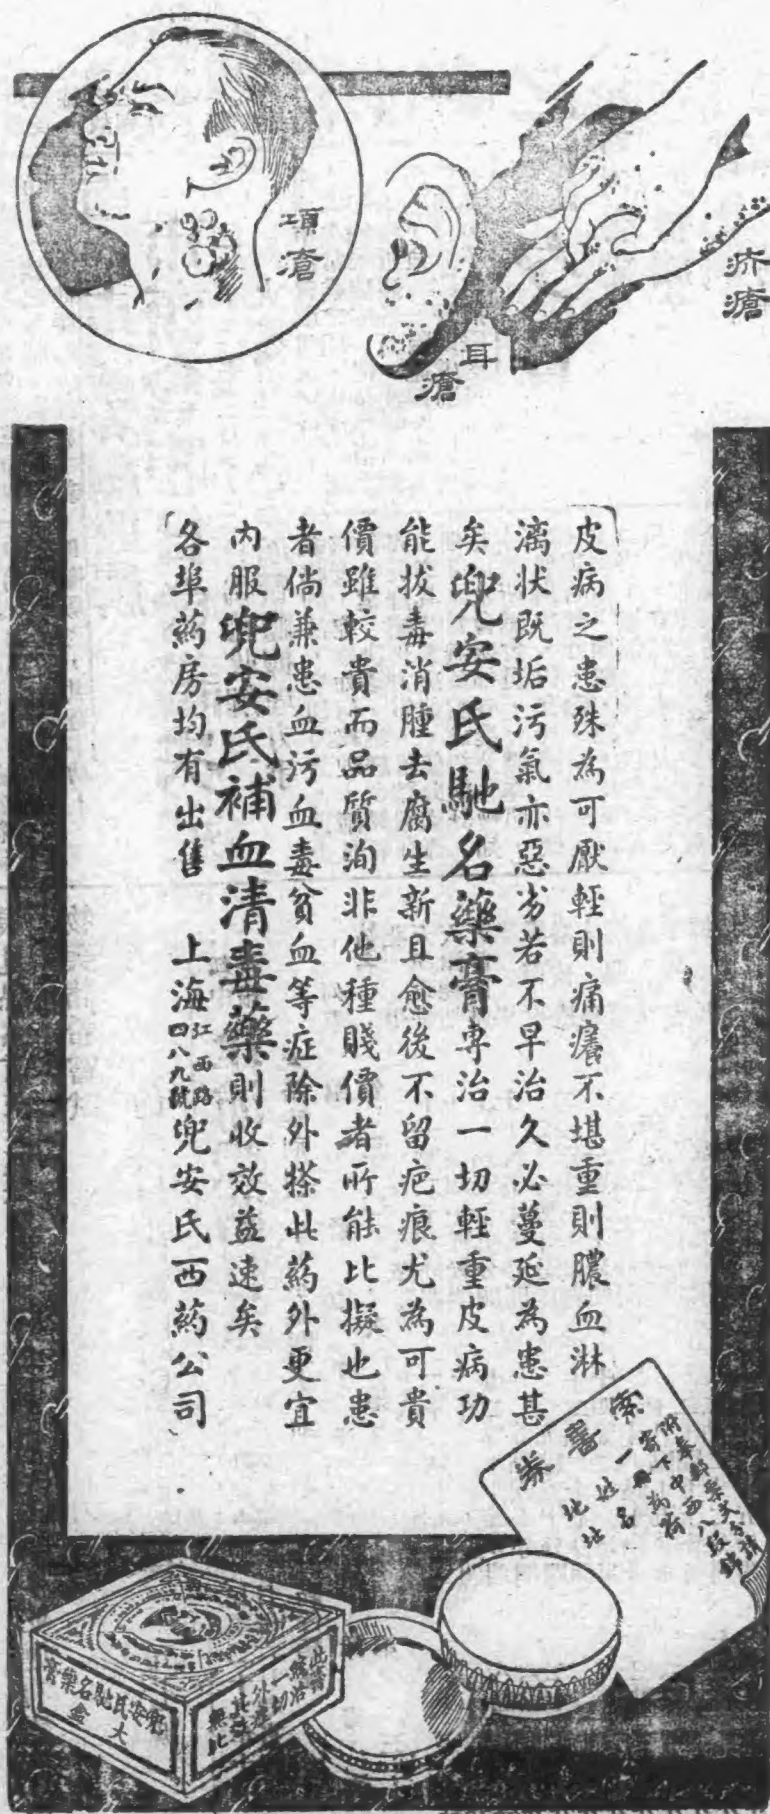 項瘡
耳瘡
疥瘡
皮病之患殊為可厭輕則痛癢不堪重則膿血淋
漓狀既垢污氣亦惡劣若不早治久必蔓延為患甚
矣兜安氏馳名藥膏專治一切輕重皮病功
能拔毒消腫去腐生新且愈後不留疤痕尤為可貴
價雖較貴而品質洵非他種賤價者所能比擬也患
者倘兼患血污血毒貧血等症除外搽此药外更宜
內服兜安氏補血清毒藥則收效益速矣
各埠药房均有出售 上海江西路四八九號兜安氏西药公司
索書券
附奉郵票
寄下中西八段錦
一冊為荷
姓名
地址
兜安氏馳名藥膏
大盒